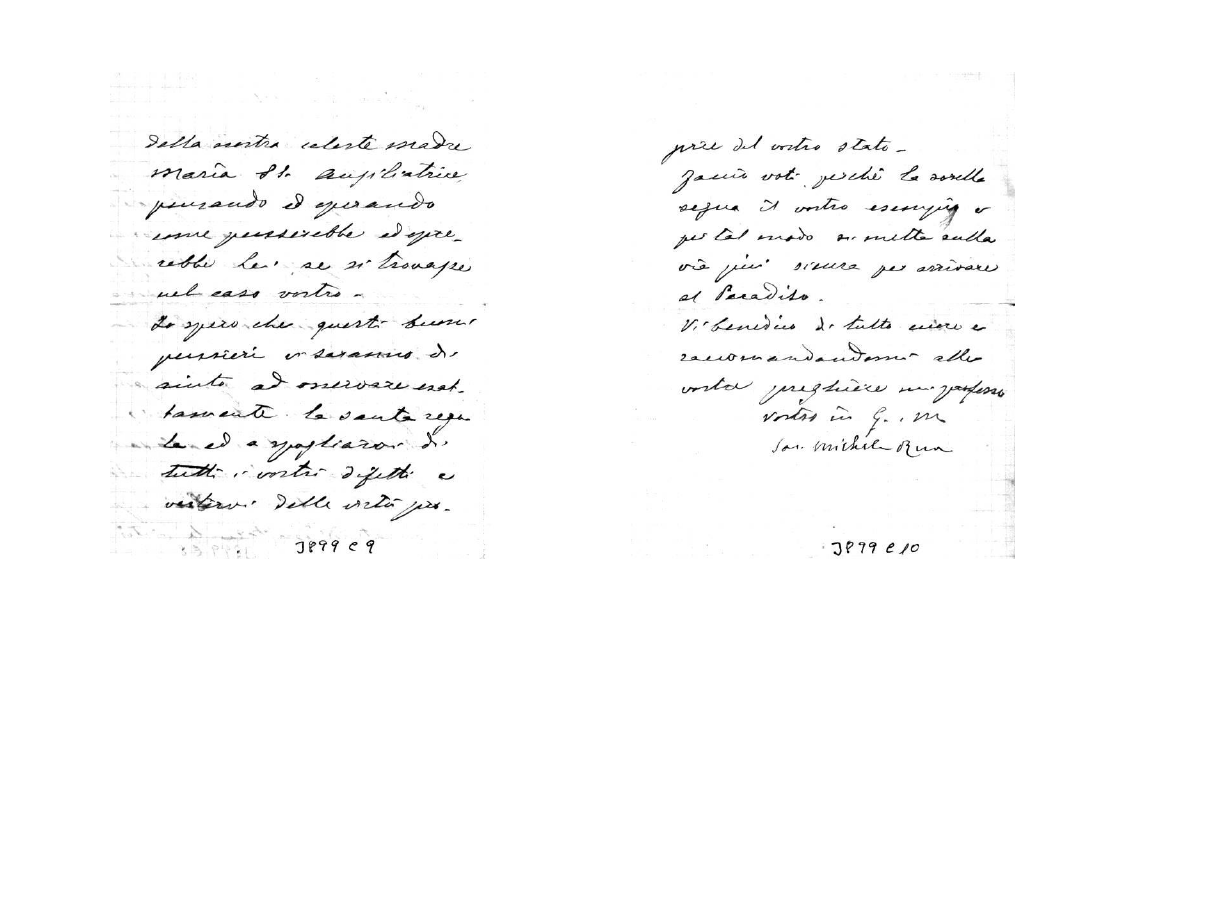 della nostra celeste madre
Maria SS. Ausiliatrice,
pensando ed operando
come penserebbe ed ope-
rebbe Lei se si trovasse
nel caso vostro -
Io spero che questi buoni
pensieri vi saranno di
aiuto ad osservare esat-
tamente la santa rego-
la ed a spogliarvi di
tutti i vostri difetti e
vestirvi delle virtù pro-
3899 C 9
prie del vostro stato -
Faccio voti perché la sorella
segua il vostro esempio e
per tal modo si metta sulla
via più sicura per arrivare
al Paradiso.
Vi benedico di tutto cuore e
raccomandandomi alle
vostre preghiere mi professo
Vostro in G. e M
Sac. Michele Rua
3899 C 10